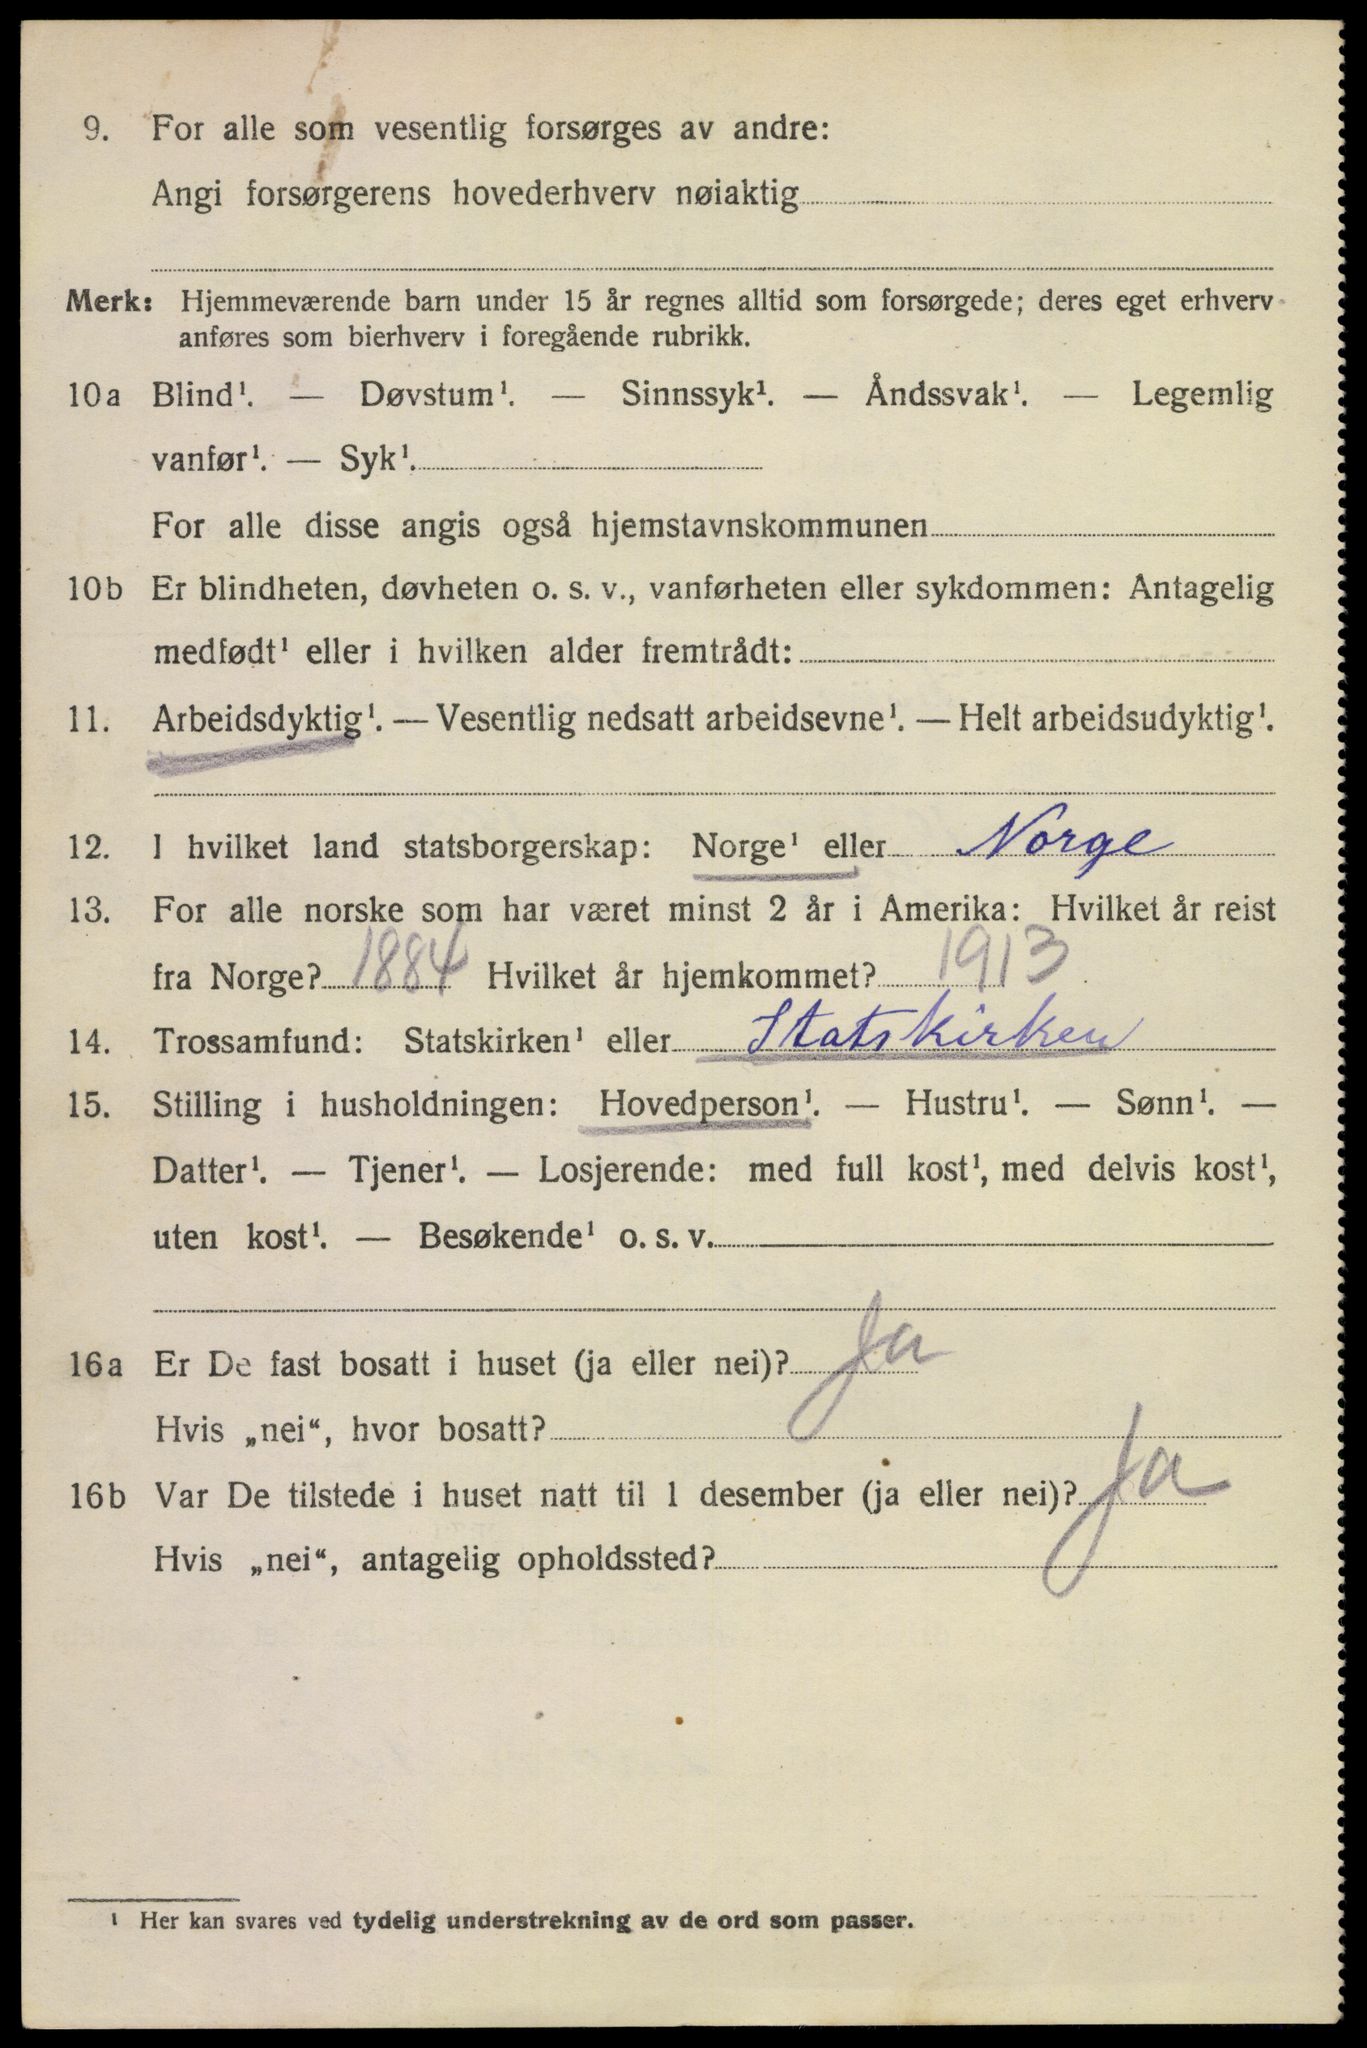 9. For alle som vesentlig forsørges av andre:
Angi forsørgerens hovederhverv nøiaktig
Merk: Hjemmeværende barn under 15 år regnes alltid som forsørgede; deres eget erhverv
anføres som bierhverv i foregående rubrikk.
10a Blind¹. — Døvstum¹. — Sinnssyk¹. — Åndssvak¹. — Legemlig
vanfør¹. — Syk¹.
For alle disse angis også hjemstavnskommunen
10b Er blindheten, døvheten o. s. v., vanførheten eller sykdommen: Antagelig
medfødt¹ eller i hvilken alder fremtrådt:
11. Arbeidsdyktig¹. — Vesentlig nedsatt arbeidsevne¹. — Helt arbeidsudyktig¹.
12. I hvilket land statsborgerskap: Norge¹ eller Norge
13. For alle norske som har været minst 2 år i Amerika: Hvilket år reist
fra Norge? 1884 Hvilket år hjemkommet? 1913
14. Trossamfund: Statskirken¹ eller Statskirken
15. Stilling i husholdningen: Hovedperson¹. — Hustru¹. — Sønn¹. —
Datter¹. — Tjener¹. — Losjerende: med full kost¹, med delvis kost¹,
uten kost¹. — Besøkende¹ o. s. v.
16a Er De fast bosatt i huset (ja eller nei)? Ja
Hvis „nei“, hvor bosatt?
16b Var De tilstede i huset natt til 1 desember (ja eller nei)? Ja
Hvis „nei“, antagelig opholdssted?
¹ Her kan svares ved tydelig understrekning av de ord som passer.